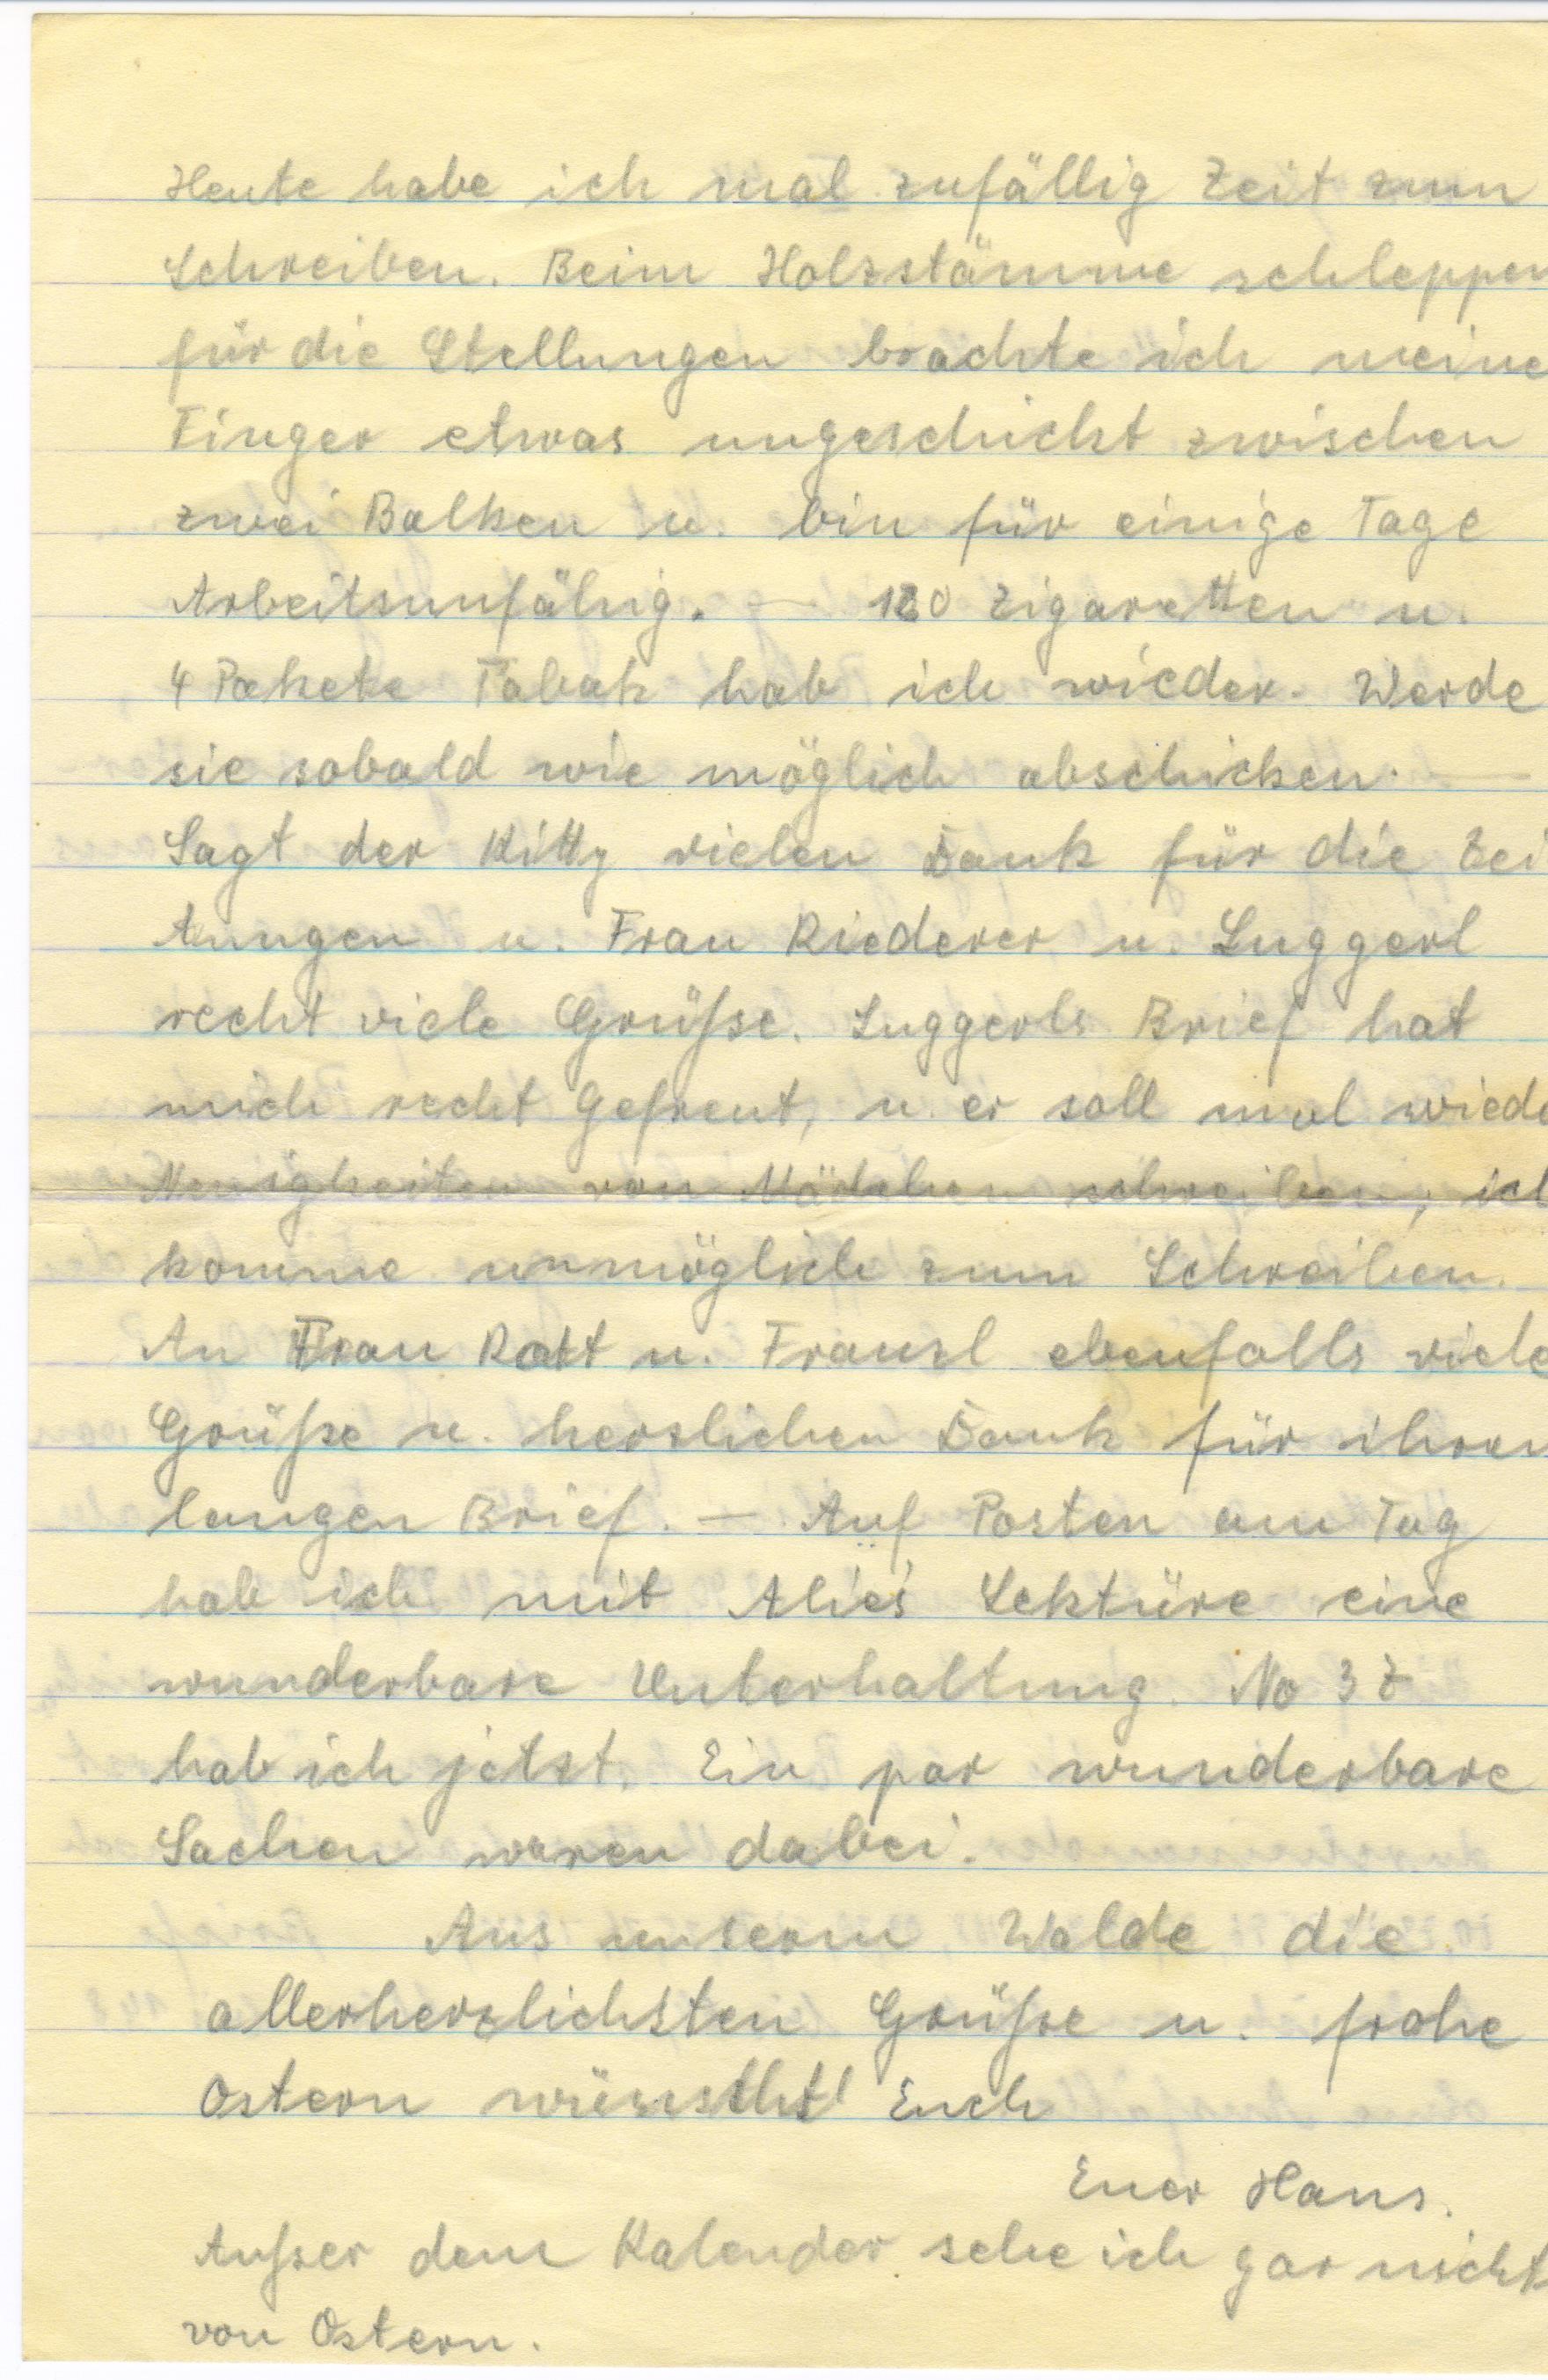 Heute habe ich mal zufällig Zeit zum
Schreiben. Beim Holzstämme schleppen
für die Stellungen brachte ich meine
Finger etwas ungeschickt zwischen
zwei Balken u. bin für einige Tage
Arbeitsunfähig. — 120 Zigaretten u.
4 Pakete Tabak hab ich wieder. Werde
sie sobald wie möglich abschicken. —
Sagt der Kitty vielen Dank für die Zei
tungen u. Frau Riederer u. Luggerl
recht viele Grüße. Luggerls Brief hat
mich recht gefreut, u. er soll mal wiede
Neuigkeiten von Mädchen schreiben, ich
komme unmöglich zum Schreiben.
An Frau Rott u. Franzl ebenfalls viele
Grüße u. herzlichen Dank für ihren
langen Brief. — Auf Posten am Tag
hab ich mit Alis Lektüre eine
wunderbare Unterhaltung. No 3
hab ich jetzt. Ein par wunderbare
Sachen waren dabei.
Aus unserm Walde die
allerherzlichsten Grüße u. frohe
Ostern wünscht Euch
Euer Hans.
Außer dem Kalender sehe ich gar nichts
von Ostern.